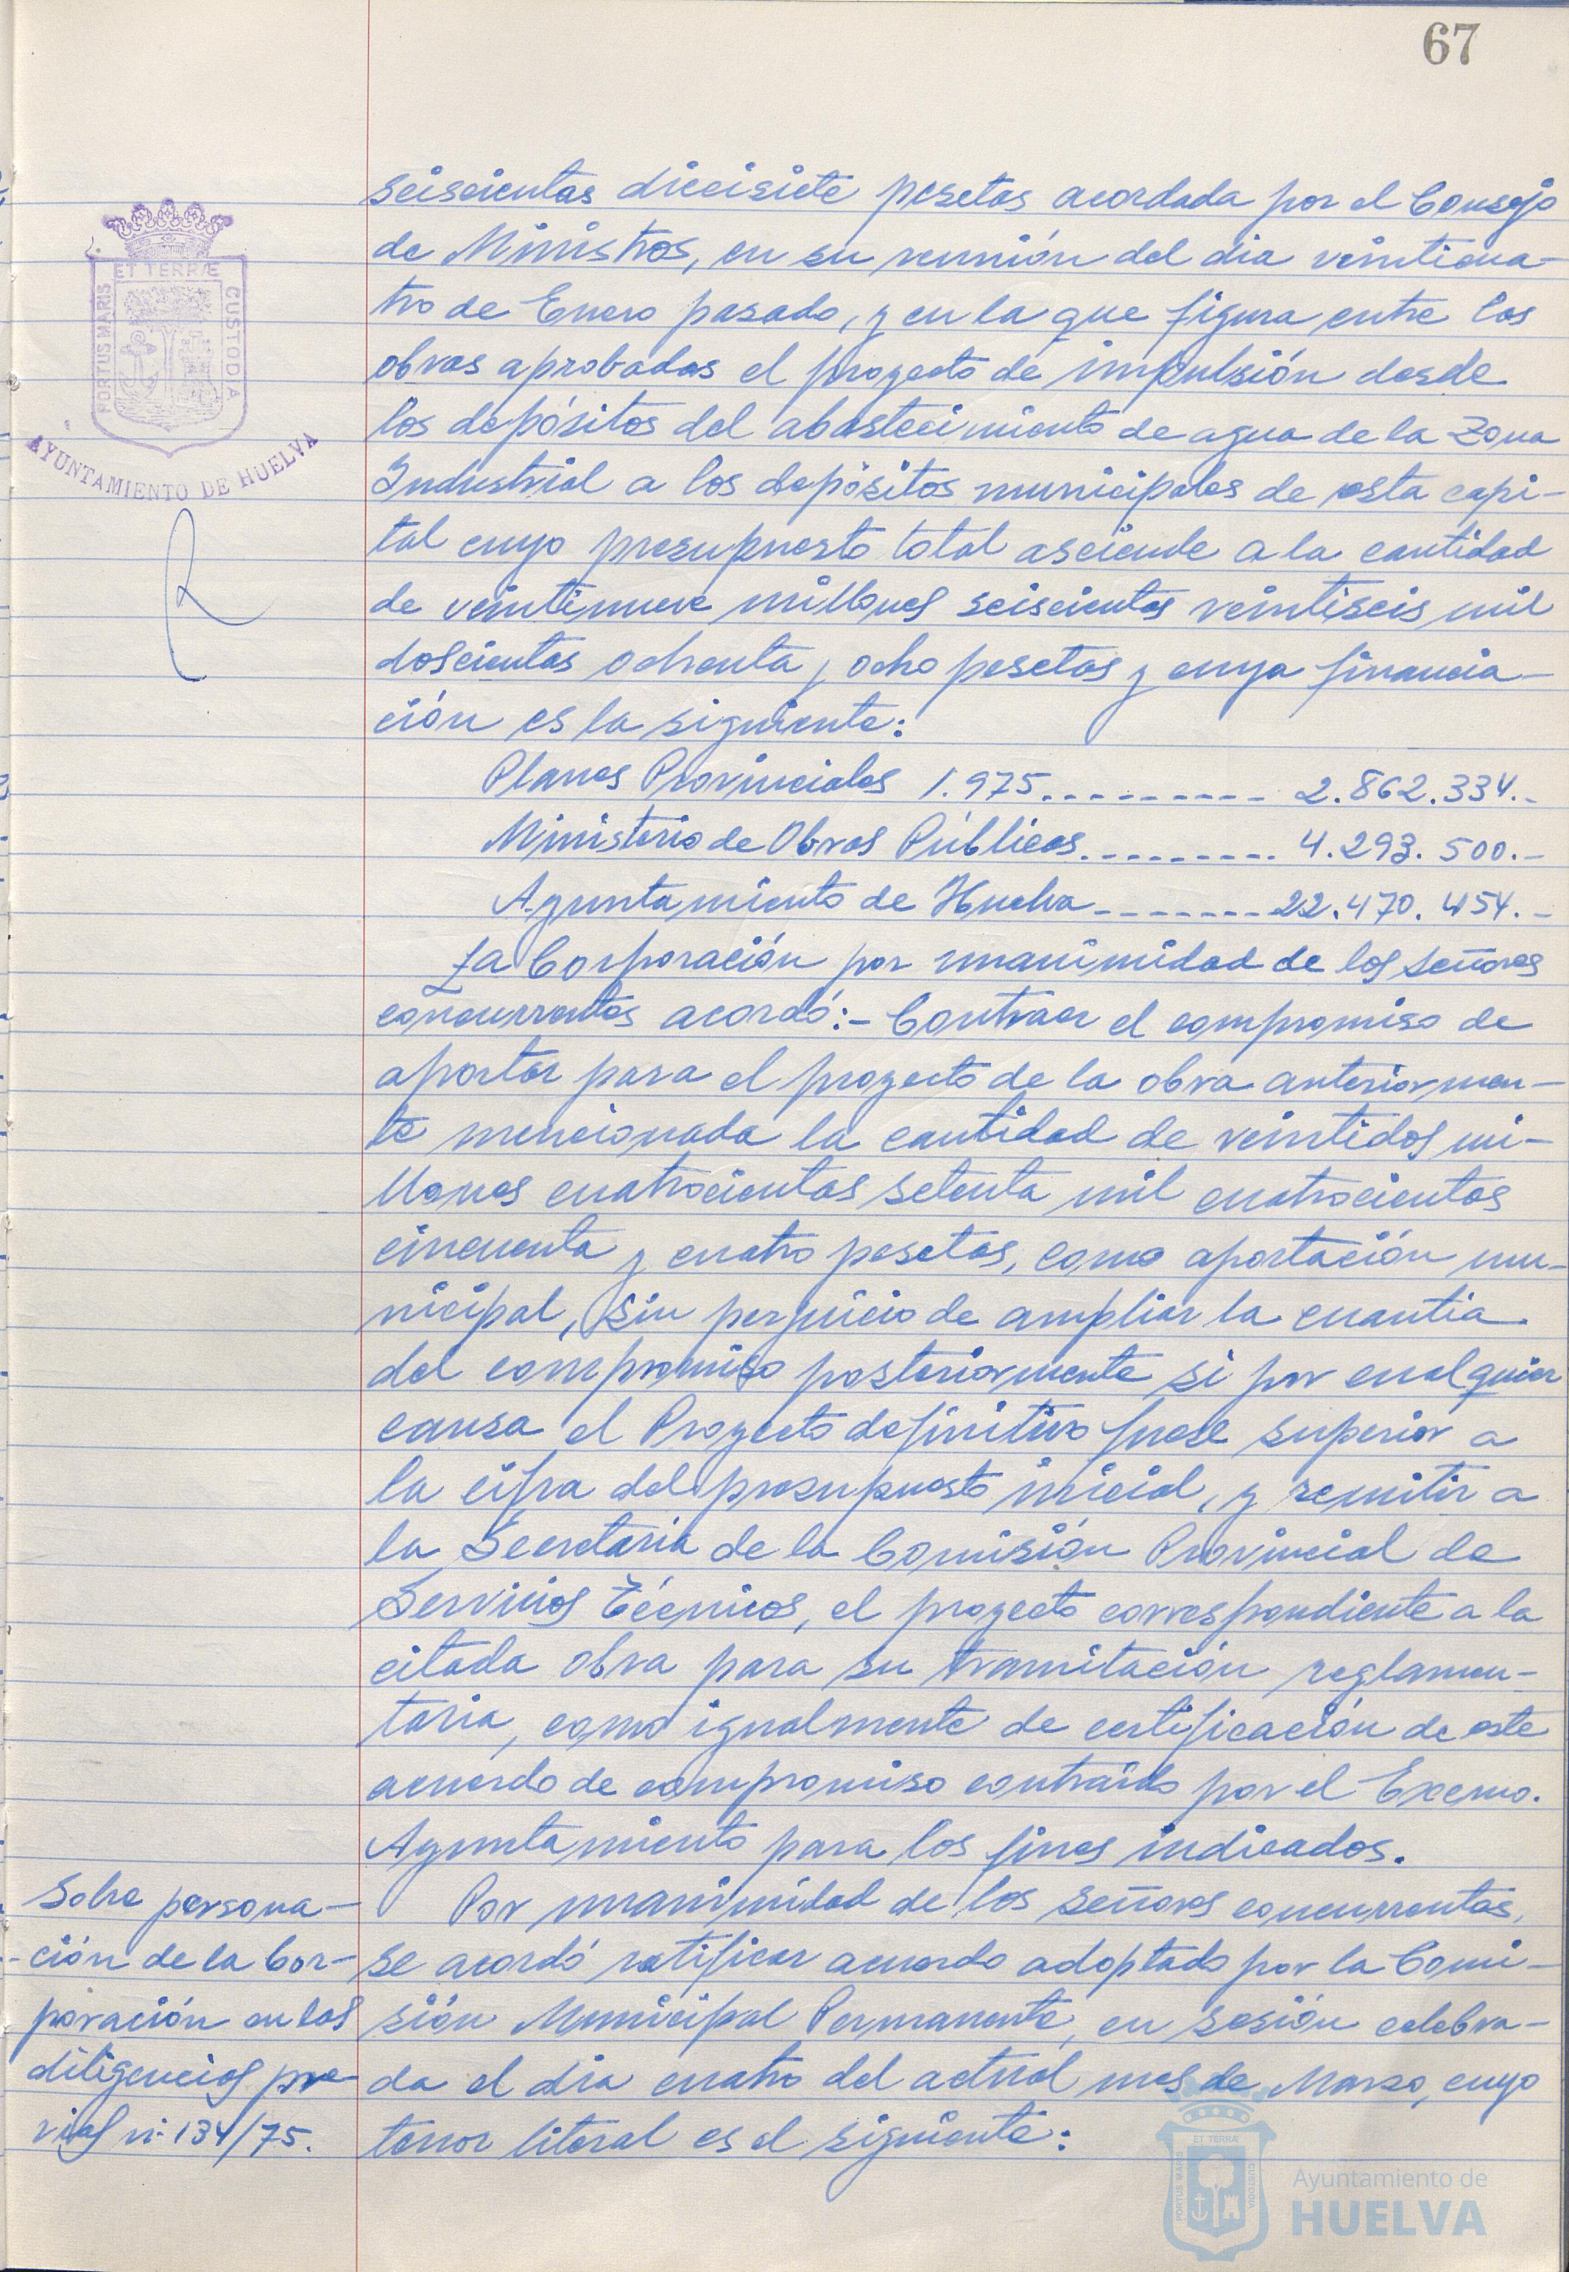 67
seiscientas diecisiete pesetas acordada por el Consejo
de Ministros, en su reunión del dia veinticua-
tro de Enero pasado, y en la que figura entre las
obras aprobadas el proyecto de impulsión desde
los depósitos del abastecimiento de agua de la Zona
Industrial a los depósitos municipales de esta capi-
tal cuyo presupuesto total asciende a la cantidad
de veintinueve millones seiscientas veintiseis mil
doscientas ochenta y ocho pesetas y cuya financia-
ción es la siguiente:
Planes Provinciales 1.975.--------- 2.862.334.-
Ministerio de Obras Públicas.--------- 4.293.500.-
Ayuntamiento de Huelva-------22.470.454.-
La Corporación por unanimidad de los señores
concurrentes acordó:- Contraer el compromiso de
aportar para el proyecto de la obra anteriormen-
te mencionada la cantidad de veintidos mi-
llones cuatrocientas setenta mil cuatrocientas
cincuenta y cuatro pesetas, como aportación mu-
nicipal, sin perjuicio de ampliar la cuantia
del compromiso posteriormente si por cualquier
causa el Proyecto definitivo fuese superior a
la cifra del presupuesto inicial, y remitir a
la Secretaria de la Comisión Provincial de
Servicios Técnicos, el proyecto correspondiente a la
citada obra para su tramitación reglamen-
taria, como igualmente de certificación de este
acuerdo de compromiso contraido por el Excmo.
Ayuntamiento para los fines indicados.
Por unanimidad de los señores concurrentes,
se acordó ratificar acuerdo adoptado por la Comi-
sión Municipal Permanente, en sesión celebra-
da el dia cuatro del actual mes de Marzo, cuyo
tenor literal es el siguiente:
Sobre persona-
-ción de la Cor-
poración en las
diligencias pre-
vias nº 134/75.
ET TERRÆ
PORTUS MARIS
CUSTODIA
AYUNTAMIENTO DE HUELVA
ET TERRÆ
PORTUS MARIS
CUSTODIA
Ayuntamiento de
HUELVA